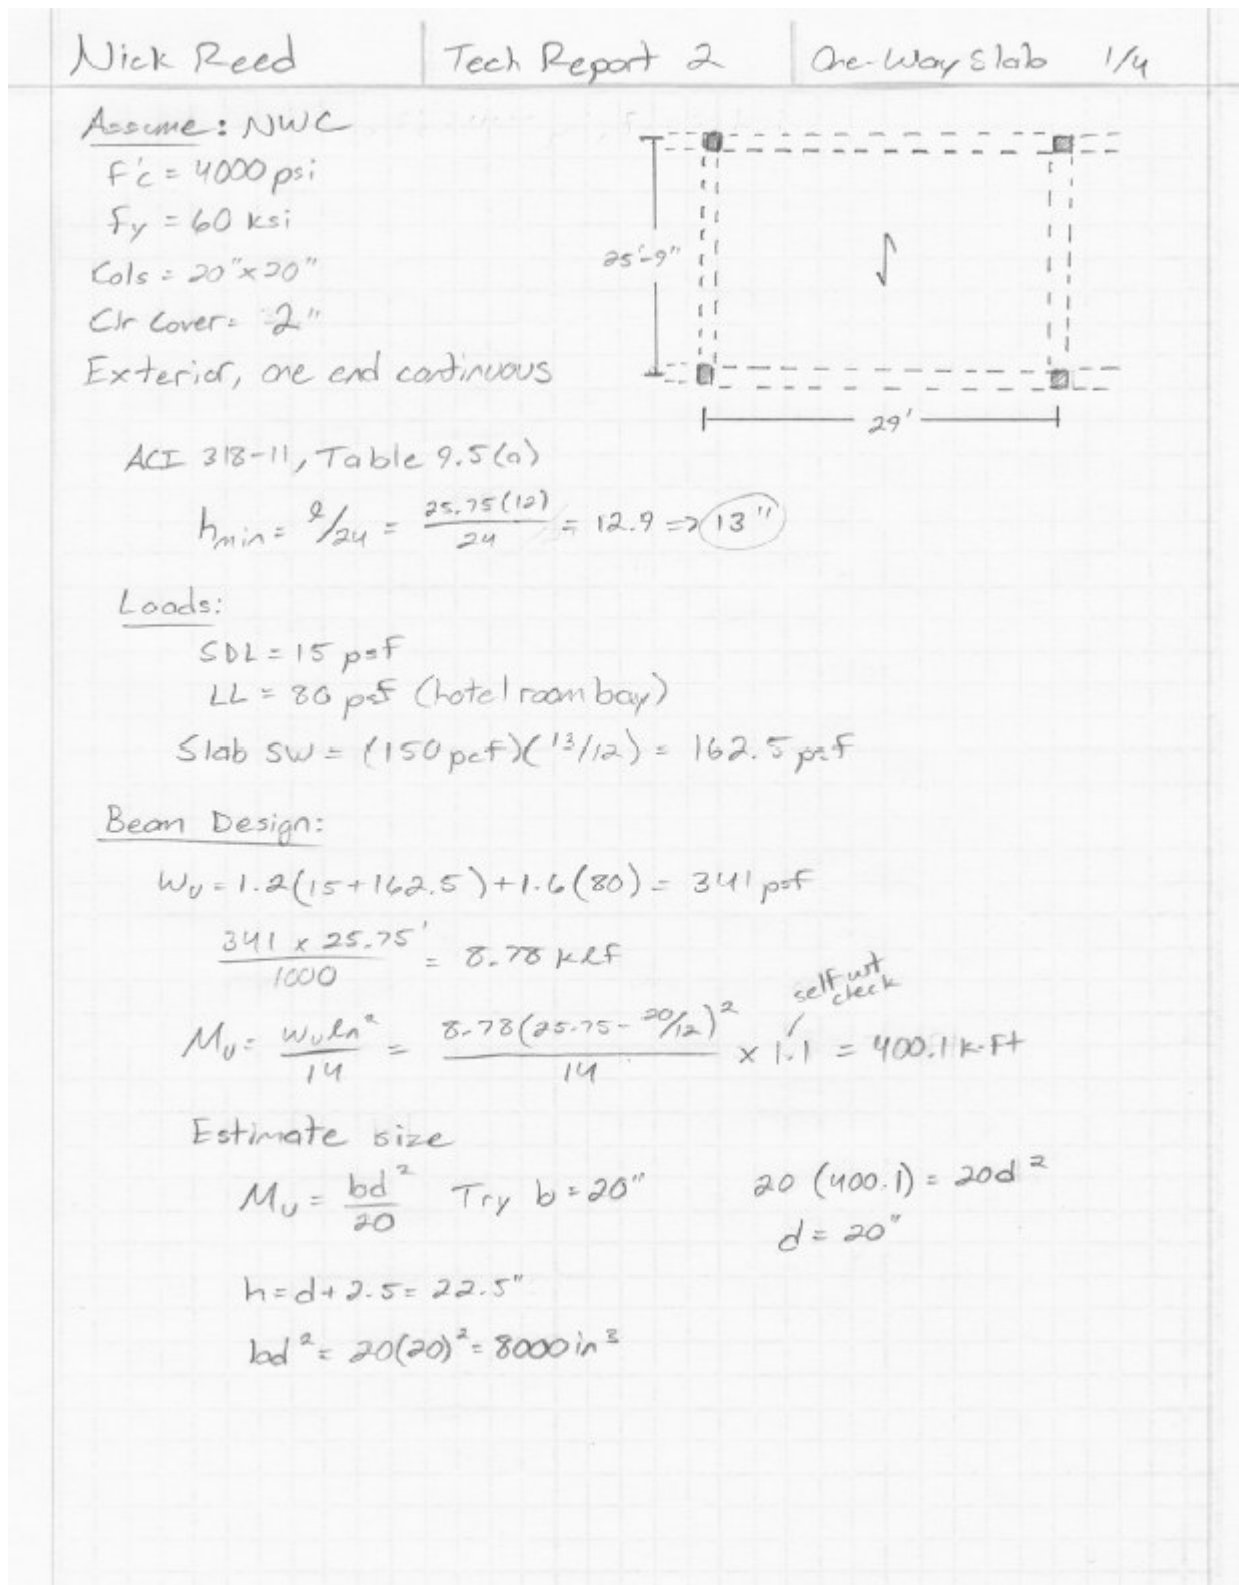 Nick Reed Tech Report 2 One-Way Slab 1/4
Assume: NWC
f'c = 4000 psi
fy = 60 ksi
Cols = 20"x20"
Clr Cover = 2"
Exterior, one end continuous
25'-9"
29'
ACI 318-11, Table 9.5(a)
hmin = l/24 = 25.75(12)/24 = 12.9 => 13"
Loads:
SDL = 15 psf
LL = 80 psf (hotel room bay)
Slab SW = (150 pcf)(13/12) = 162.5 psf
Beam Design:
Wu = 1.2(15+162.5)+1.6(80) = 341 psf
341 x 25.75'/1000 = 8.78 klf
self wt
check
Mu = wuln²/14 = 8.78(25.75-20/12)²/14 x 1.1 = 400.1 k-ft
Estimate size
Mu = bd²/20 Try b = 20" 20 (400.1) = 20d²
d = 20"
h = d+2.5 = 22.5"
bd² = 20(20)² = 8000 in³